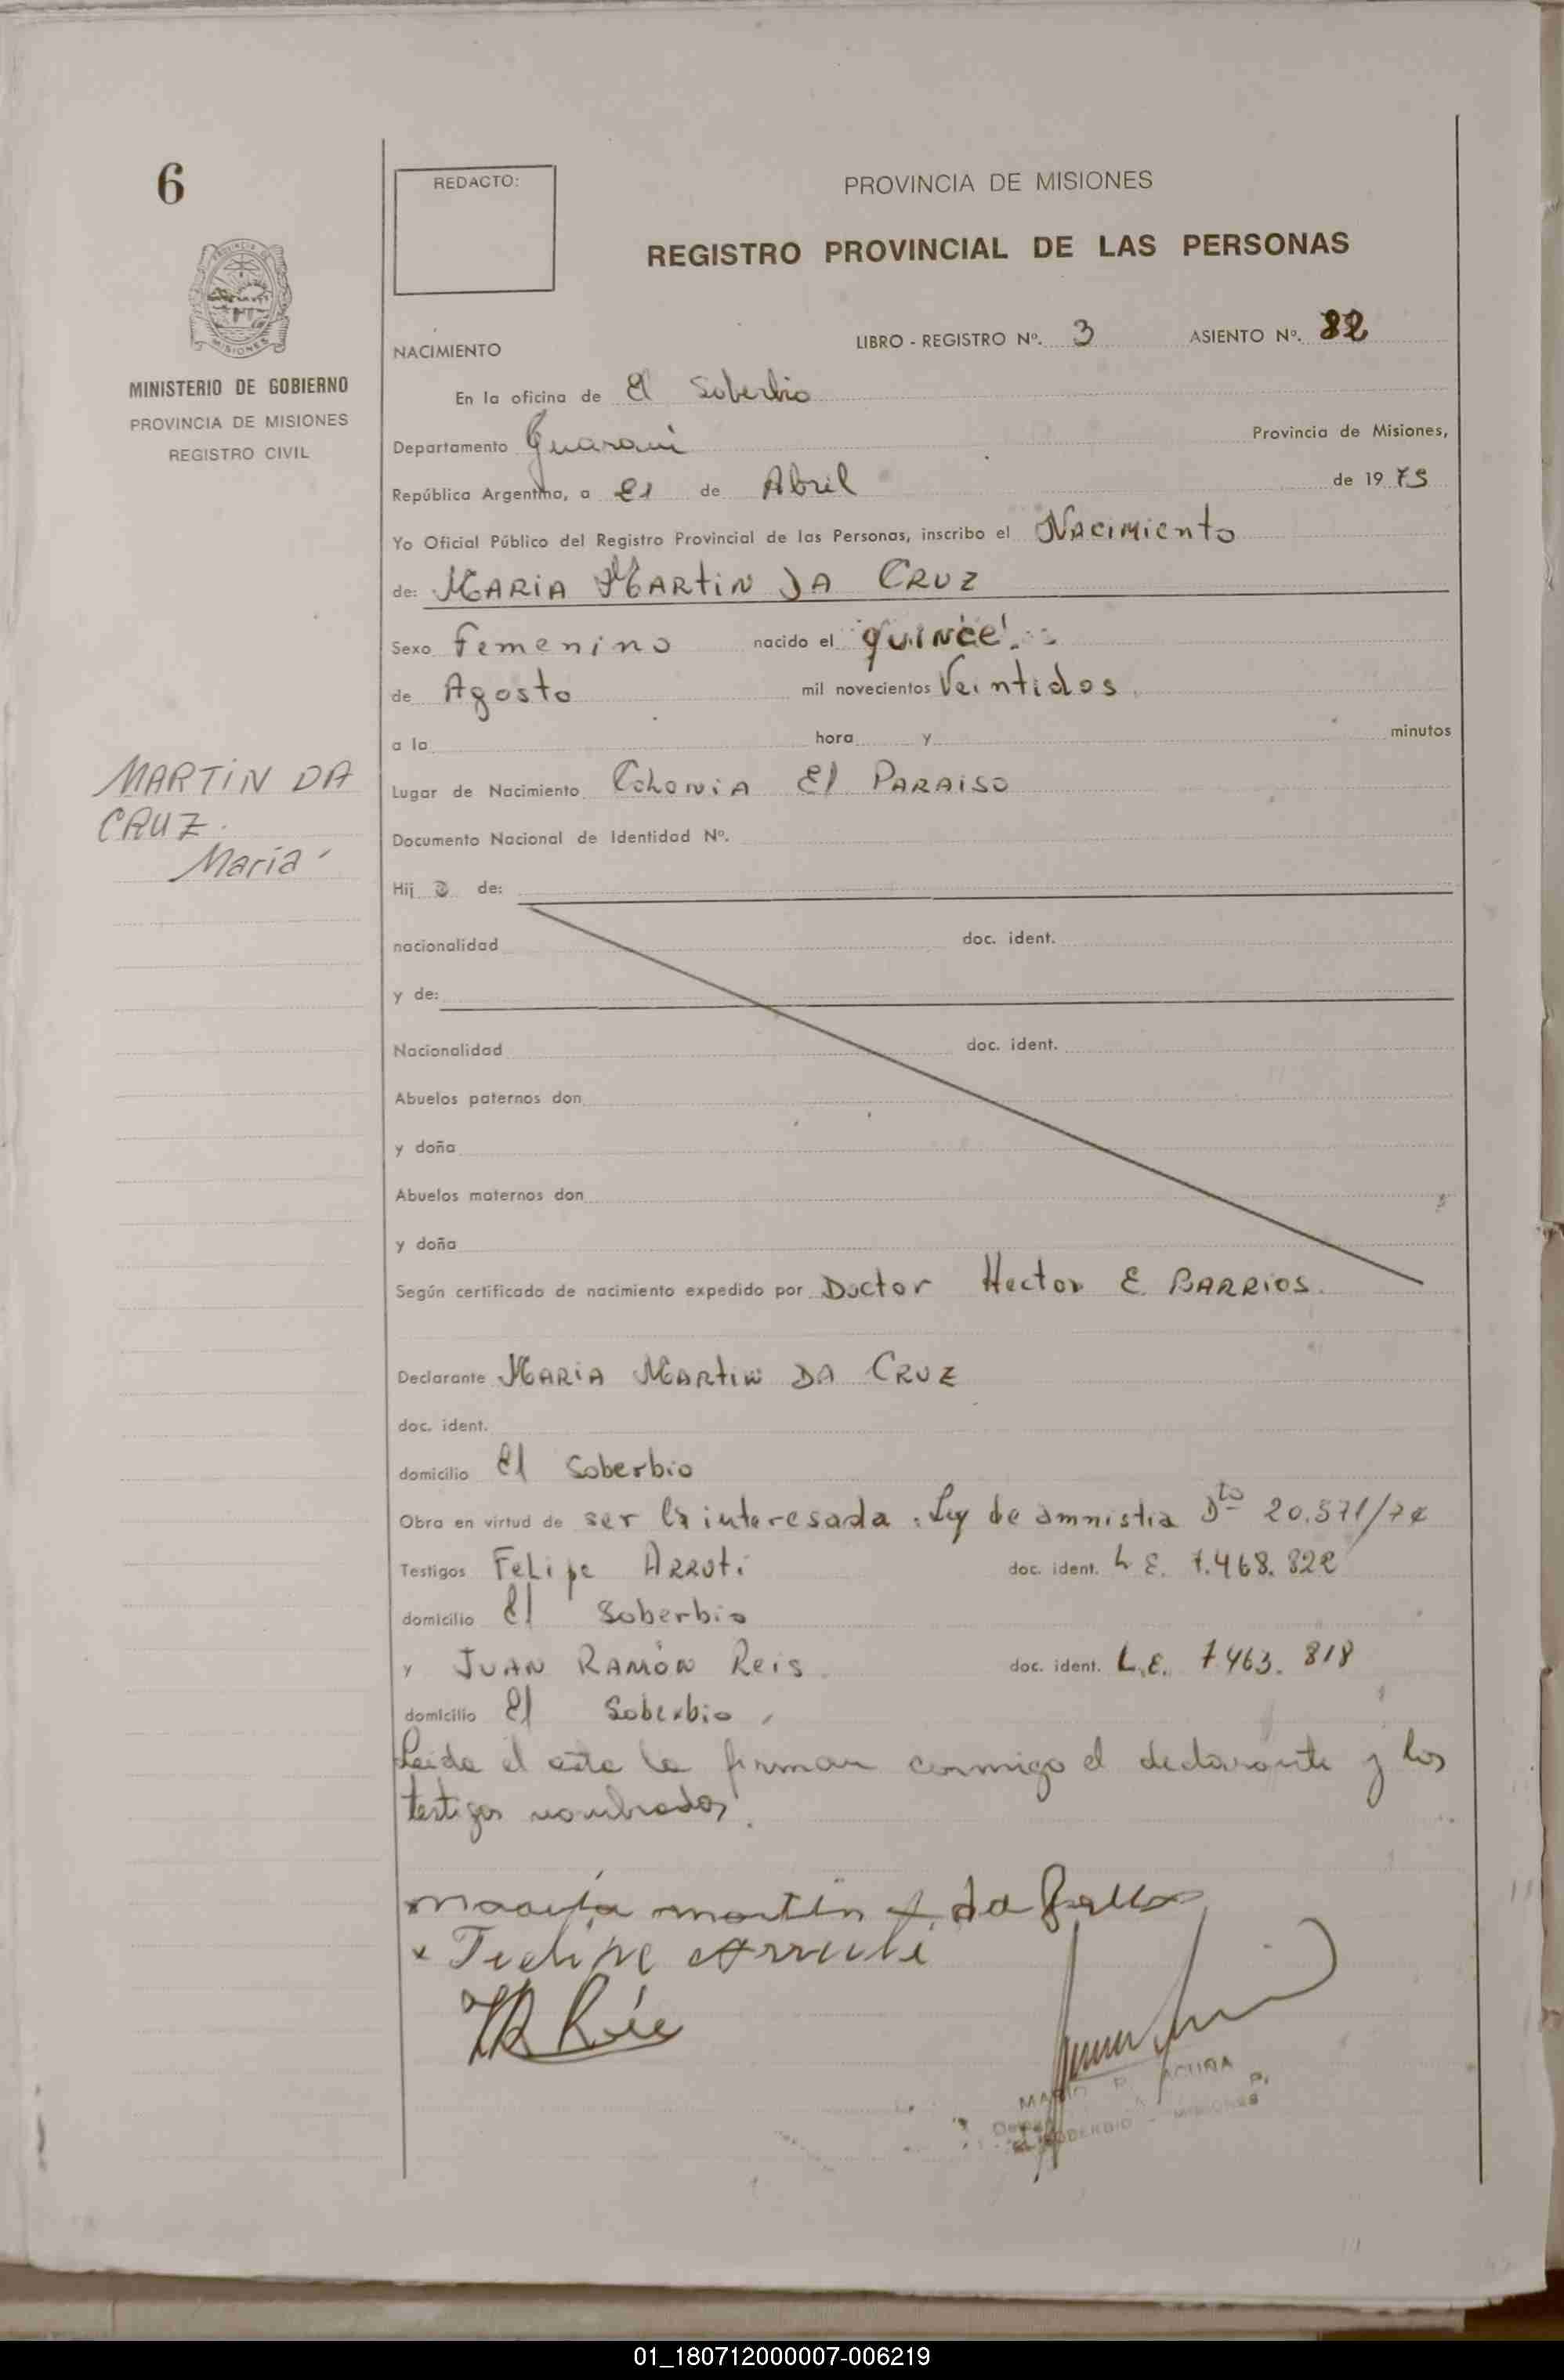 6
REDACTO:
PROVINCIA DE MISIONES
REGISTRO PROVINCIAL DE LAS PERSONAS
PROVINCIA DE
MISIONES
MINISTERIO DE GOBIERNO
PROVINCIA DE MISIONES
REGISTRO CIVIL
NACIMIENTO LIBRO - REGISTRO Nº. 3 ASIENTO Nº. 82
En la oficina de El Soberbio
Departamento Guarani Provincia de Misiones,
República Argentina, a 21 de Abril de 1975
Yo Oficial Público del Registro Provincial de las Personas, inscribo el Nacimiento
de: MARIA MARTIN DA CRUZ
Sexo Femenino nacido el quince
de Agosto mil novecientos Veintidos
a la hora y minutos
MARTIN DA
CRUZ.
Maria
Lugar de Nacimiento Colonia El Paraiso
Documento Nacional de Identidad Nº.
Hij a de:
nacionalidad doc. ident.
y de:
Nacionalidad doc. ident.
Abuelos paternos don
y doña
Abuelos maternos don
y doña
Según certificado de nacimiento expedido por Doctor Hector E. BARRIOS.
Declarante MARIA MARTIN DA CRUZ
doc. ident.
domicilio El Soberbio
Obra en virtud de ser la interesada. Ley de amnistia Dto 20.571/74
Testigos Felipe Arruti doc. ident. L E. 7.468.822
domicilio El Soberbio
y JUAN RAMÓN Reis doc. ident. L.E. 7.463.818
domicilio El Soberbio
Leida el acta la firman conmigo el declarante y los
testigos nombrados.
maria martin da
x Felipe Arruti
MARIO R. ACUÑA
EL SOBERBIO - MISIONES
01_180712000007-006219